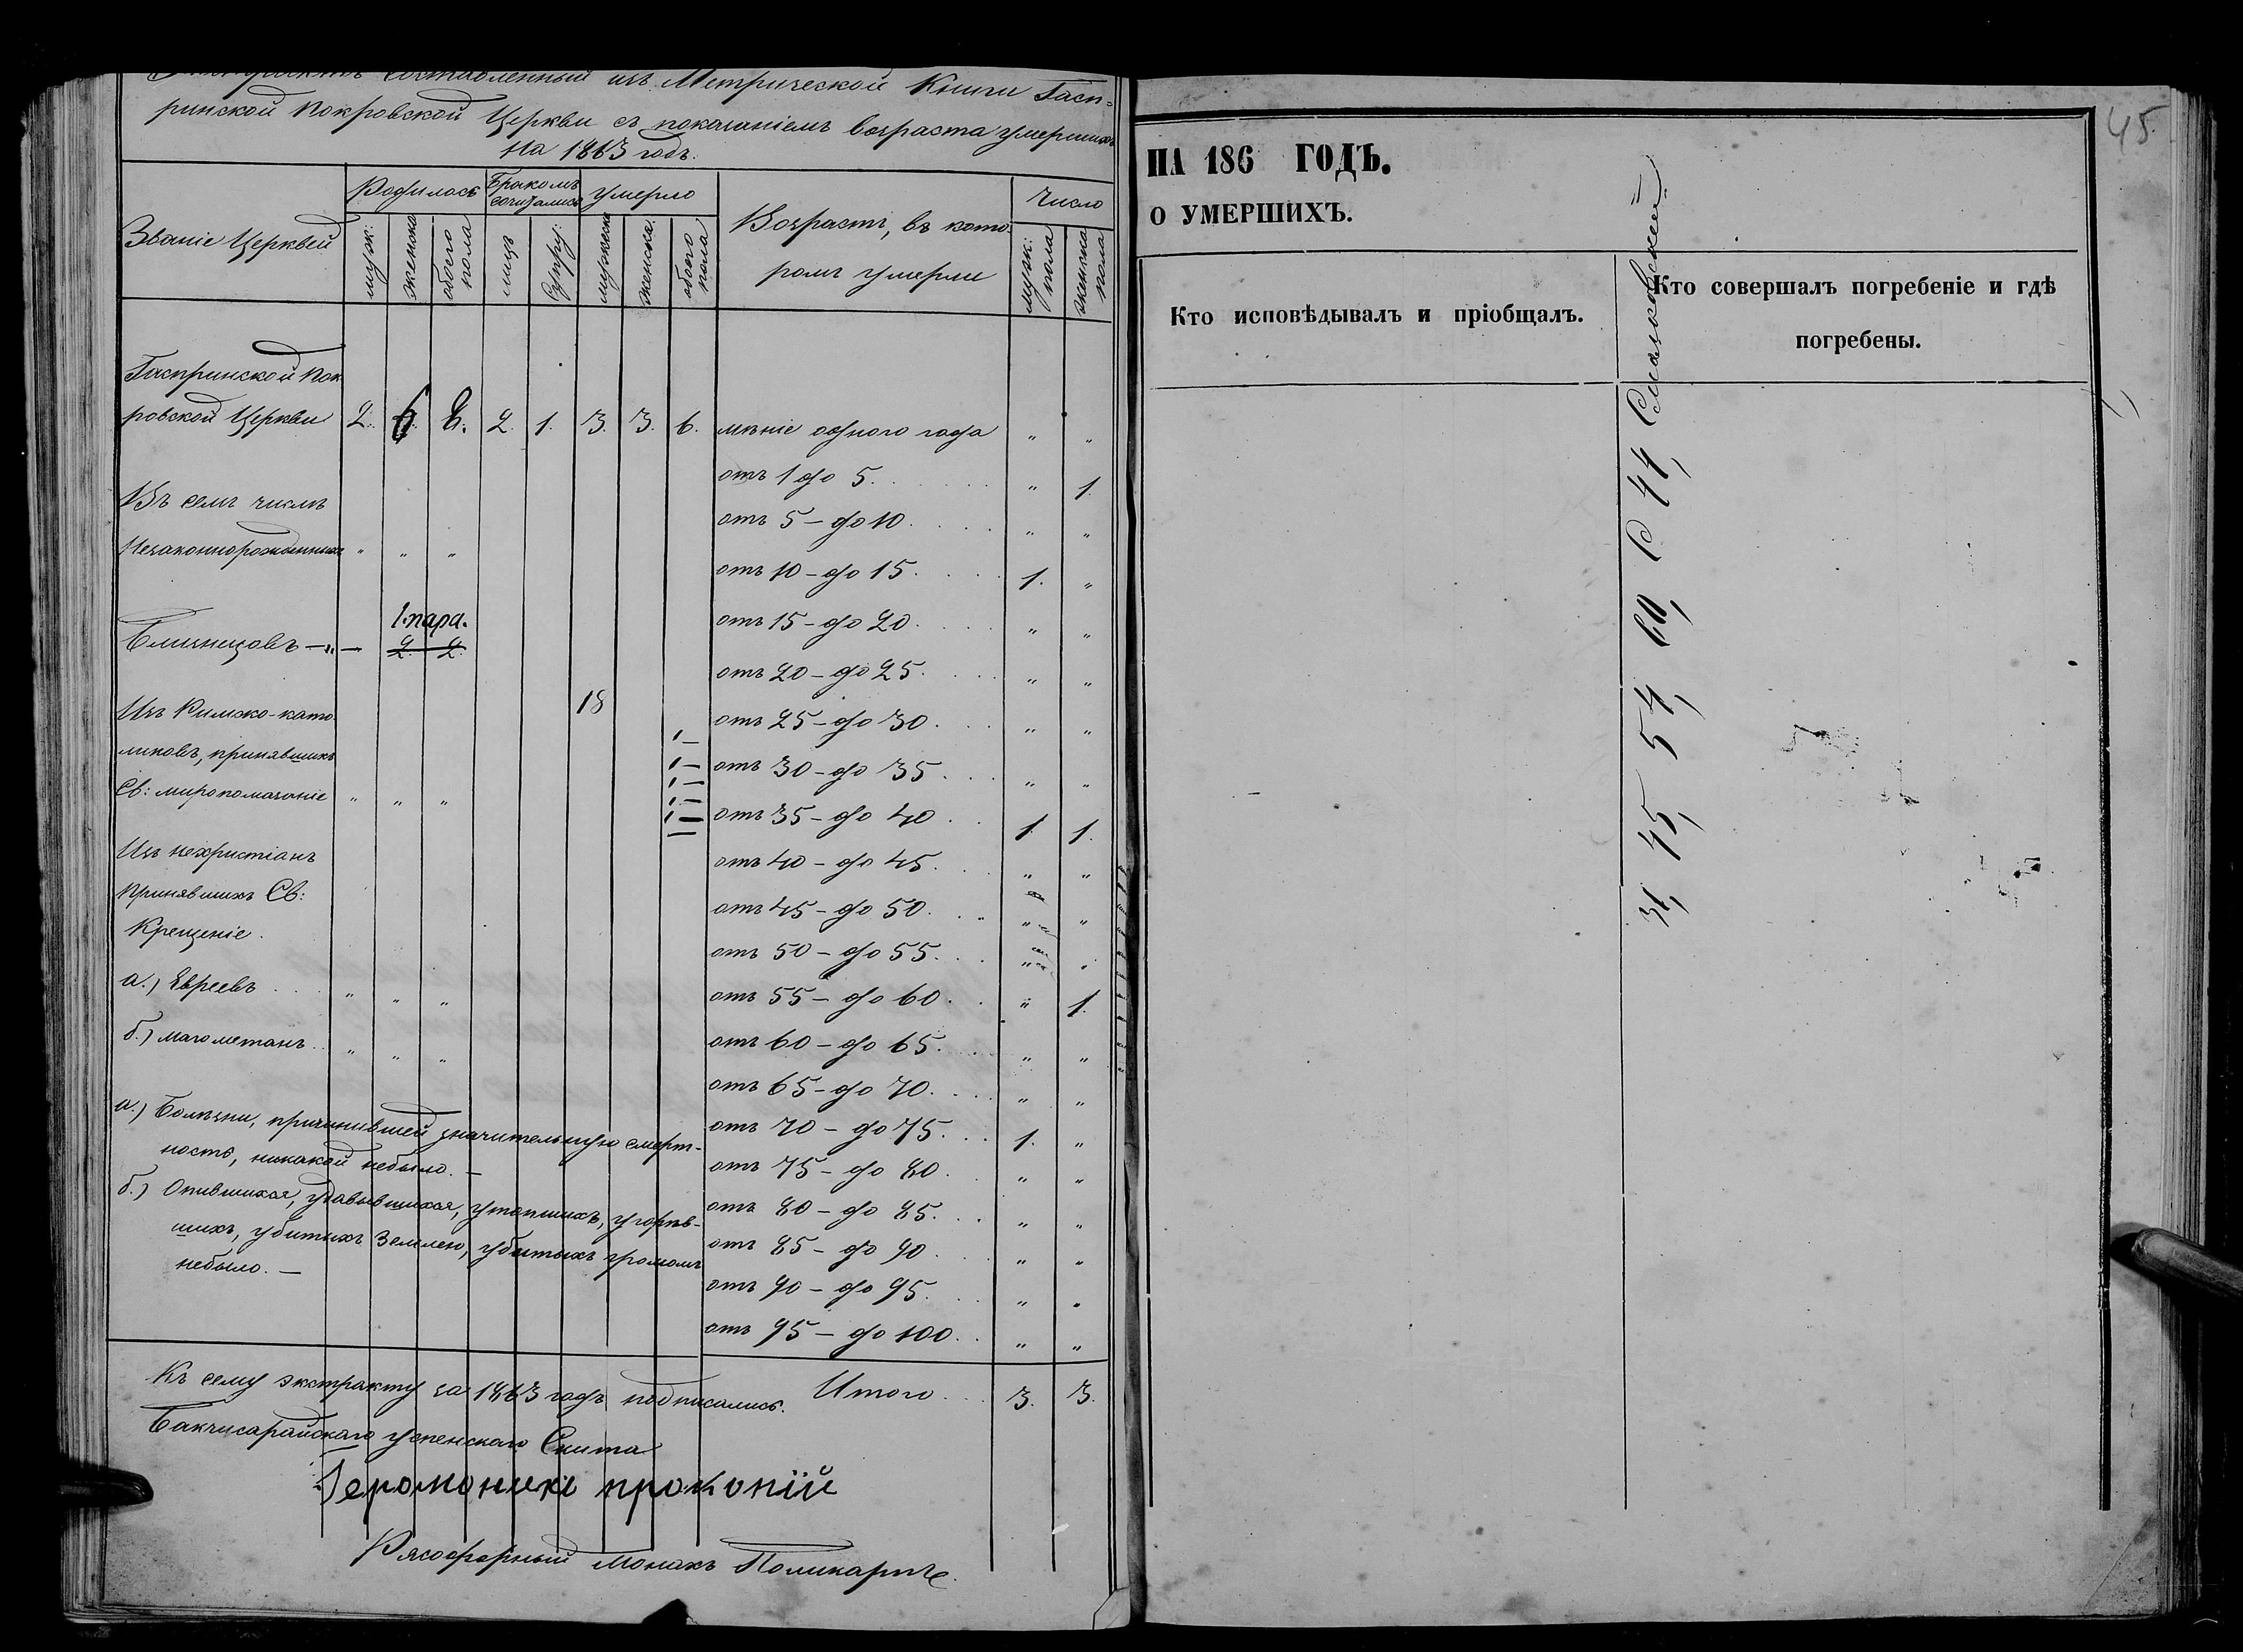 Экстрактъ составленный изъ Метрической Книги Гасп-
ринской Покровской Церкви съ показаніемъ возраста умершихъ
на 1863 годъ.
Званіе Церквей
Родилось
Бракомъ сочиталось
Умерло
Возрастъ, въ кото-
ромъ умерли
Число
муж:
женска
обоего пола
лицъ
супру:
мужеска
женска.
обоего пола
мужес: пола
женска пола
Гаспринской Пок-
ровской Церкви 2. 6. 8. 2. 1. 3. 3. 6. мѣніе одного года " "
отъ 1 до 5. " 1.
Въ семъ числѣ
отъ 5 – до 10. " "
Незаконнорожденныхъ " " "
отъ 10 – до 15. 1. "
1. пара.
отъ 15 – до 20. " "
Близнецовъ — " — 2. 2.
отъ 20 – до 25. " "
18
Изъ Римско-като-
отъ 25 – до 30. " "
ликовъ, принявшихъ
отъ 30 – до 35. " "
Св: миропомазаніе " " "
отъ 35 – до 40. 1. 1.
Изъ нехристіанъ
отъ 40 – до 45. " "
принявшихъ Св:
отъ 45 – до 50. " "
Крещеніе.
отъ 50 – до 55. " "
а.) Евреевъ " " "
отъ 55 – до 60. " 1.
б.) магометанъ " " "
отъ 60 – до 65. " "
отъ 65 – до 70. " "
а.) Болѣзни, причинившей значительную смерт-
отъ 70 – до 75. 1. "
ность, никакой небыло. —
отъ 75 – до 80. " "
б.) Опившихся, удавившихся, утопшихъ, угорѣв-
отъ 80 – до 85. " "
шихъ, убитыхъ землею, убитыхъ громомъ
отъ 85 – до 90. " "
небыло. —
отъ 90 – до 95. " "
отъ 95 – до 100. " "
Къ сему экстракту за 1863 годъ подписались.
Итого. 3. 3.
Бакчисарайскаго Успенскаго Скита
Іеромонихъ прокопій
Рясофорный Монахъ Поликарпъ.
45.
НА 186 ГОДЪ.
О УМЕРШИХЪ.
Кто исповѣдывалъ и пріобщалъ.
Кто совершалъ погребеніе и гдѣ
погребены.
45, 54, 60,